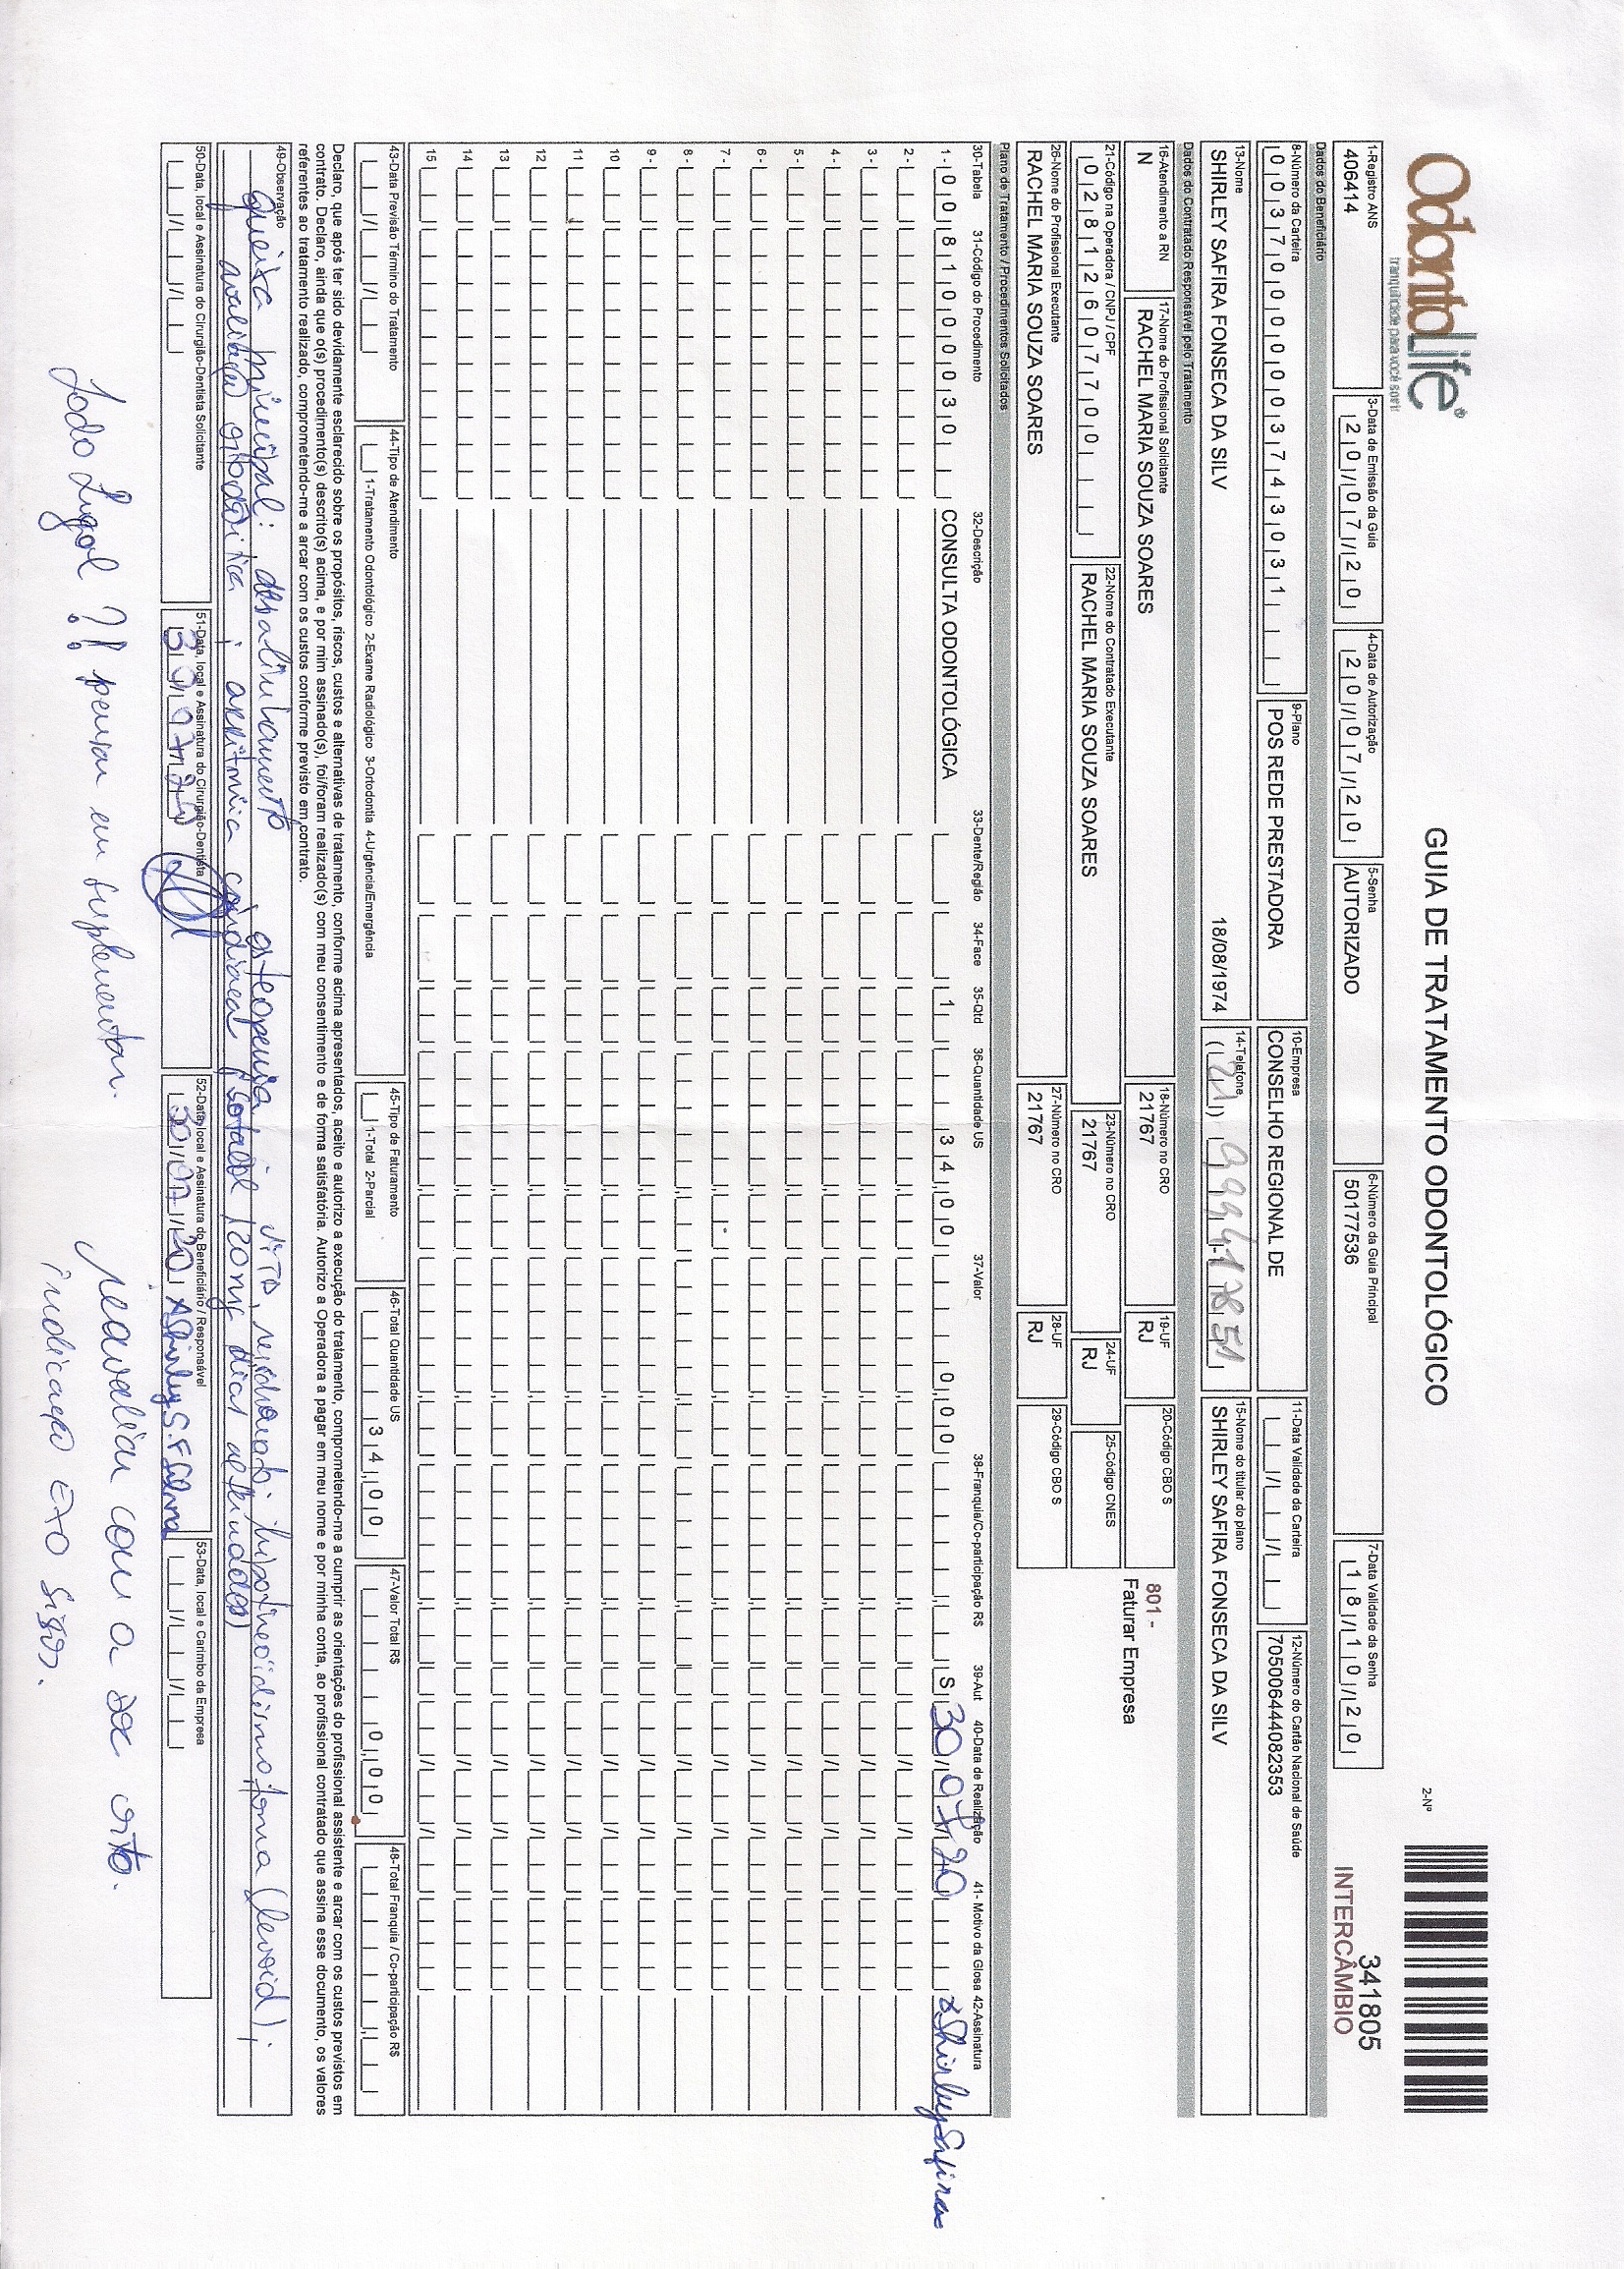 OdontoLife®
tranquilidade para você sorrir
GUIA DE TRATAMENTO ODONTOLÓGICO
2-Nº
341805
INTERCÂMBIO
1-Registro ANS
406414
3-Data de Emissão da Guia
20/07/20
4-Data de Autorização
20/07/20
5-Senha
AUTORIZADO
6-Número da Guia Principal
50177536
7-Data Validade da Senha
18/10/20
Dados do Beneficiário
8-Número da Carteira
00370000000374303 1
9-Plano
POS REDE PRESTADORA
10-Empresa
CONSELHO REGIONAL DE
11-Data Validade da Carteira
12-Número do Cartão Nacional de Saúde
705006444082353
13-Nome
SHIRLEY SAFIRA FONSECA DA SILV
18/08/1974
14-Telefone
(21)
15-Nome do titular do plano
SHIRLEY SAFIRA FONSECA DA SILV
Dados do Contratado Responsável pelo Tratamento
16-Atendimento a RN
N
17-Nome do Profissional Solicitante
RACHEL MARIA SOUZA SOARES
18-Número no CRO
21767
19-UF
RJ
20-Código CBO S
801 -
Faturar Empresa
21-Código na Operadora / CNPJ / CPF
02812607700
22-Nome do Contratado Executante
RACHEL MARIA SOUZA SOARES
23-Número no CRO
21767
24-UF
RJ
25-Código CNES
26-Nome do Profissional Executante
RACHEL MARIA SOUZA SOARES
27-Número no CRO
21767
28-UF
RJ
29-Código CBO S
Plano de Tratamento / Procedimentos Solicitados
30-Tabela 31-Código do Procedimento 32-Descrição 33-Dente/Região 34-Face 35-Qtd 36-Quantidade US 37-Valor 38-Franquia/Co-participação R$ 39-Aut 40-Data de Realização 41- Motivo da Glosa 42-Assinatura
1 - 00 81000030 CONSULTA ODONTOLÓGICA 1 34,00 0,00 S 30 07 20 x Shirley Safira
2 -
3 -
4 -
5 -
6 -
7 -
8 -
9 -
10
11
12
13
14
15
43-Data Previsão Término do Tratamento
44-Tipo de Atendimento
1-Tratamento Odontológico 2-Exame Radiológico 3-Ortodontia 4-Urgência/Emergência
45-Tipo de Faturamento
1-Total 2-Parcial
46-Total Quantidade US
34,00
47-Valor Total R$
0,00
48-Total Franquia / Co-participação R$
Declaro, que após ter sido devidamente esclarecido sobre os propósitos, riscos, custos e alternativas de tratamento, conforme acima apresentados, aceito e autorizo a execução do tratamento, comprometendo-me a cumprir as orientações do profissional assistente e arcar com os custos previstos em
contrato. Declaro, ainda que o(s) procedimento(s) descrito(s) acima, e por mim assinado(s), foi/foram realizado(s) com meu consentimento e de forma satisfatória. Autorizo a Operadora a pagar em meu nome e por minha conta, ao profissional contratado que assina esse documento, os valores
referentes ao tratamento realizado, comprometendo-me a arcar com os custos conforme previsto em contrato.
49-Observação
queixa principal: desalinhamento osteopenia hipotireoidismo, toma (levoid);
arritmia cardíaca (sotalol 120mg
50-Data, local e Assinatura do Cirurgião-Dentista Solicitante
51-Data, local e Assinatura do Cirurgião-Dentista
30 07 20
52-Data, local e Assinatura do Beneficiário / Responsável
30/07/20 x Shirley S. F. Silva
53-Data, local e Carimbo da Empresa
Iodo Lugol ?! pensar em suplementar.
reavaliar com a
indicação EXO sisos.